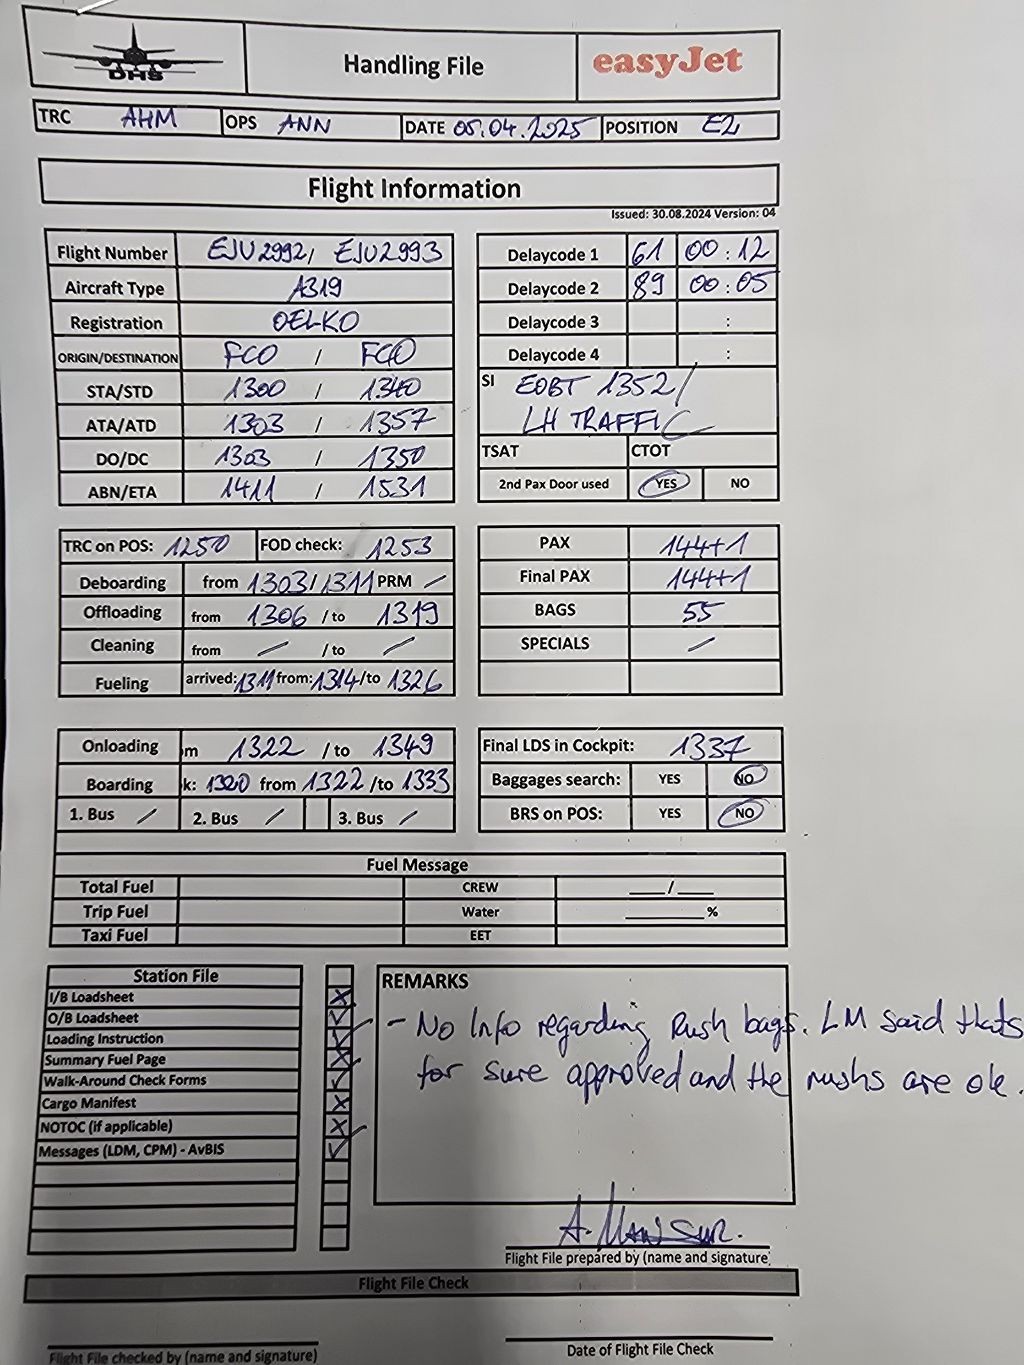 DHS
Handling File
easyJet
TRC AHM OPS ANN DATE 05.04.2025 POSITION E2
Flight Information
Issued: 30.08.2024 Version: 04
Flight Number EJU2992/ EJU2993
Aircraft Type A319
Registration OELKO
ORIGIN/DESTINATION FCO / FCO
STA/STD 1300 / 1340
ATA/ATD 1303 / 1357
DO/DC 1303 / 1350
ABN/ETA 1411 / 1531
Delaycode 1 61 00:12
Delaycode 2 89 00:05
Delaycode 3 :
Delaycode 4 :
SI EOBT 1352/
LH TRAFFIC
TSAT CTOT
2nd Pax Door used YES NO
TRC on POS: 1250 FOD check: 1253
Deboarding from 1303/1311 PRM /
Offloading from 1306 /to 1319
Cleaning from / /to /
Fueling arrived: 1311 from: 1314/to 1326
PAX 144+1
Final PAX 144+1
BAGS 55
SPECIALS /
Onloading m 1322 /to 1349
Boarding k: 1320 from 1322 /to 1333
1. Bus / 2. Bus / 3. Bus /
Final LDS in Cockpit: 1337
Baggages search: YES NO
BRS on POS: YES NO
Fuel Message
Total Fuel CREW ___/___
Trip Fuel Water ______%
Taxi Fuel EET
Station File
I/B Loadsheet X
O/B Loadsheet ✓
Loading Instruction ✓
Summary Fuel Page X
Walk-Around Check Forms ✓
Cargo Manifest X
NOTOC (if applicable) X
Messages (LDM, CPM) - AvBIS ✓
REMARKS
- No Info regarding Rush bags. LM said thats
for sure approved and the rushs are ok.
A. Mansur.
Flight File prepared by (name and signature)
Flight File Check
Flight File checked by (name and signature)
Date of Flight File Check